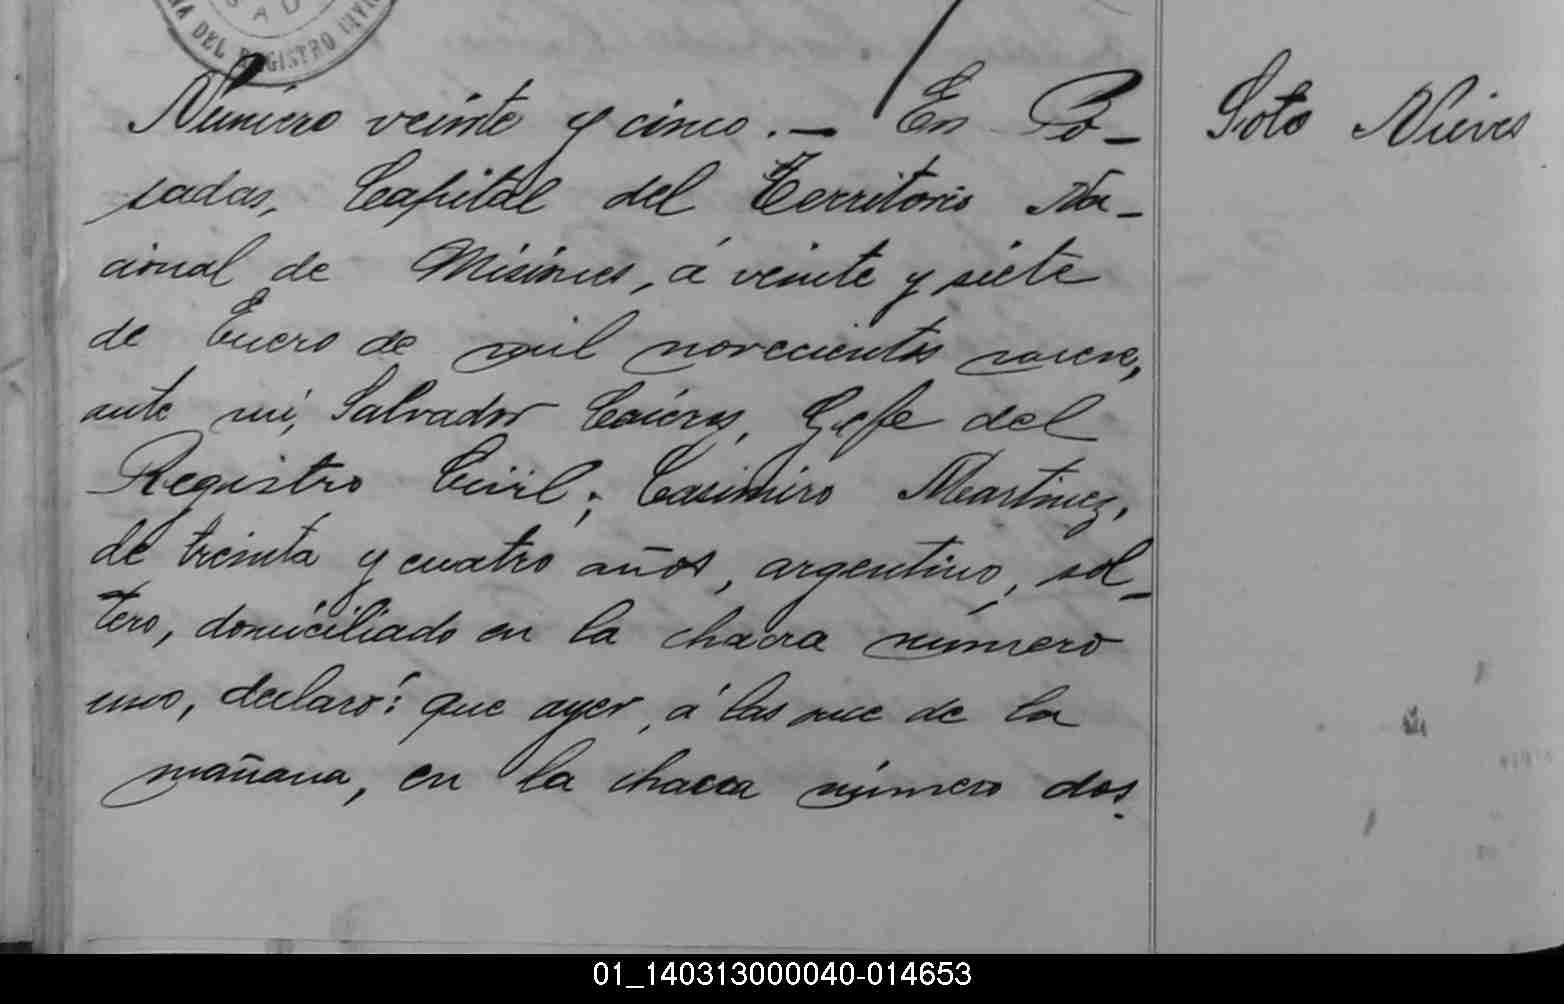 DEL REGISTRO CIVIL
Número veinte y cinco.— En Po-
sadas, Capital del Territorio Na-
cional de Misiones, á veinte y siete
de Enero de mil novecientos nueve,
ante mí, Salvador Gefe del
Registro Civil; Casimiro Martinez,
de treinta y cuatro años, argentino, sol-
tero, domiciliado en la chacra número
uno, declaró: que ayer, á las once de la
mañana, en la chacra número dos.
Soto Nieves
01_140313000040-014653